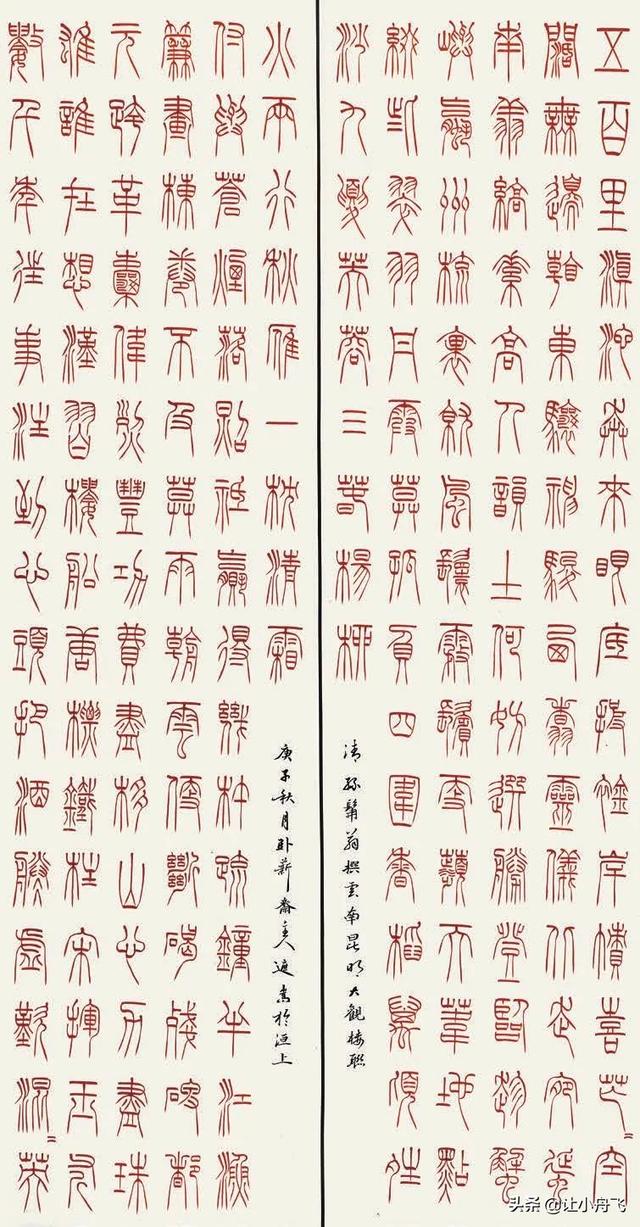 五百里滇池奔來眼底披襟岸幘喜茫〻空
闊無邊看東驤神駿西翥靈儀北走蜿蜒
南翔縞素高人韻士何妨選勝登臨趁蟹
嶼螺洲梳裹就風鬟霧鬢更蘋天葦地點
綴些翠羽丹霞莫孤負四圍香稻萬頃晴
沙九夏芙蓉三春楊柳
清孫髯翁撰雲南昆明大觀樓聯
數千年往事注到心頭把酒凌虛歎滾〻英
雄誰在想漢習樓船唐標鐵柱宋揮玉斧
元跨革囊偉烈豐功費盡移山心力盡珠
簾畫棟卷不及暮雨朝雲便斷碣殘碑都
付與蒼煙落照只贏得幾杵疏鐘半江漁
火兩行秋雁一枕清霜
庚子秋月卧薪齋主人書於洹上
头条 @让小舟飞